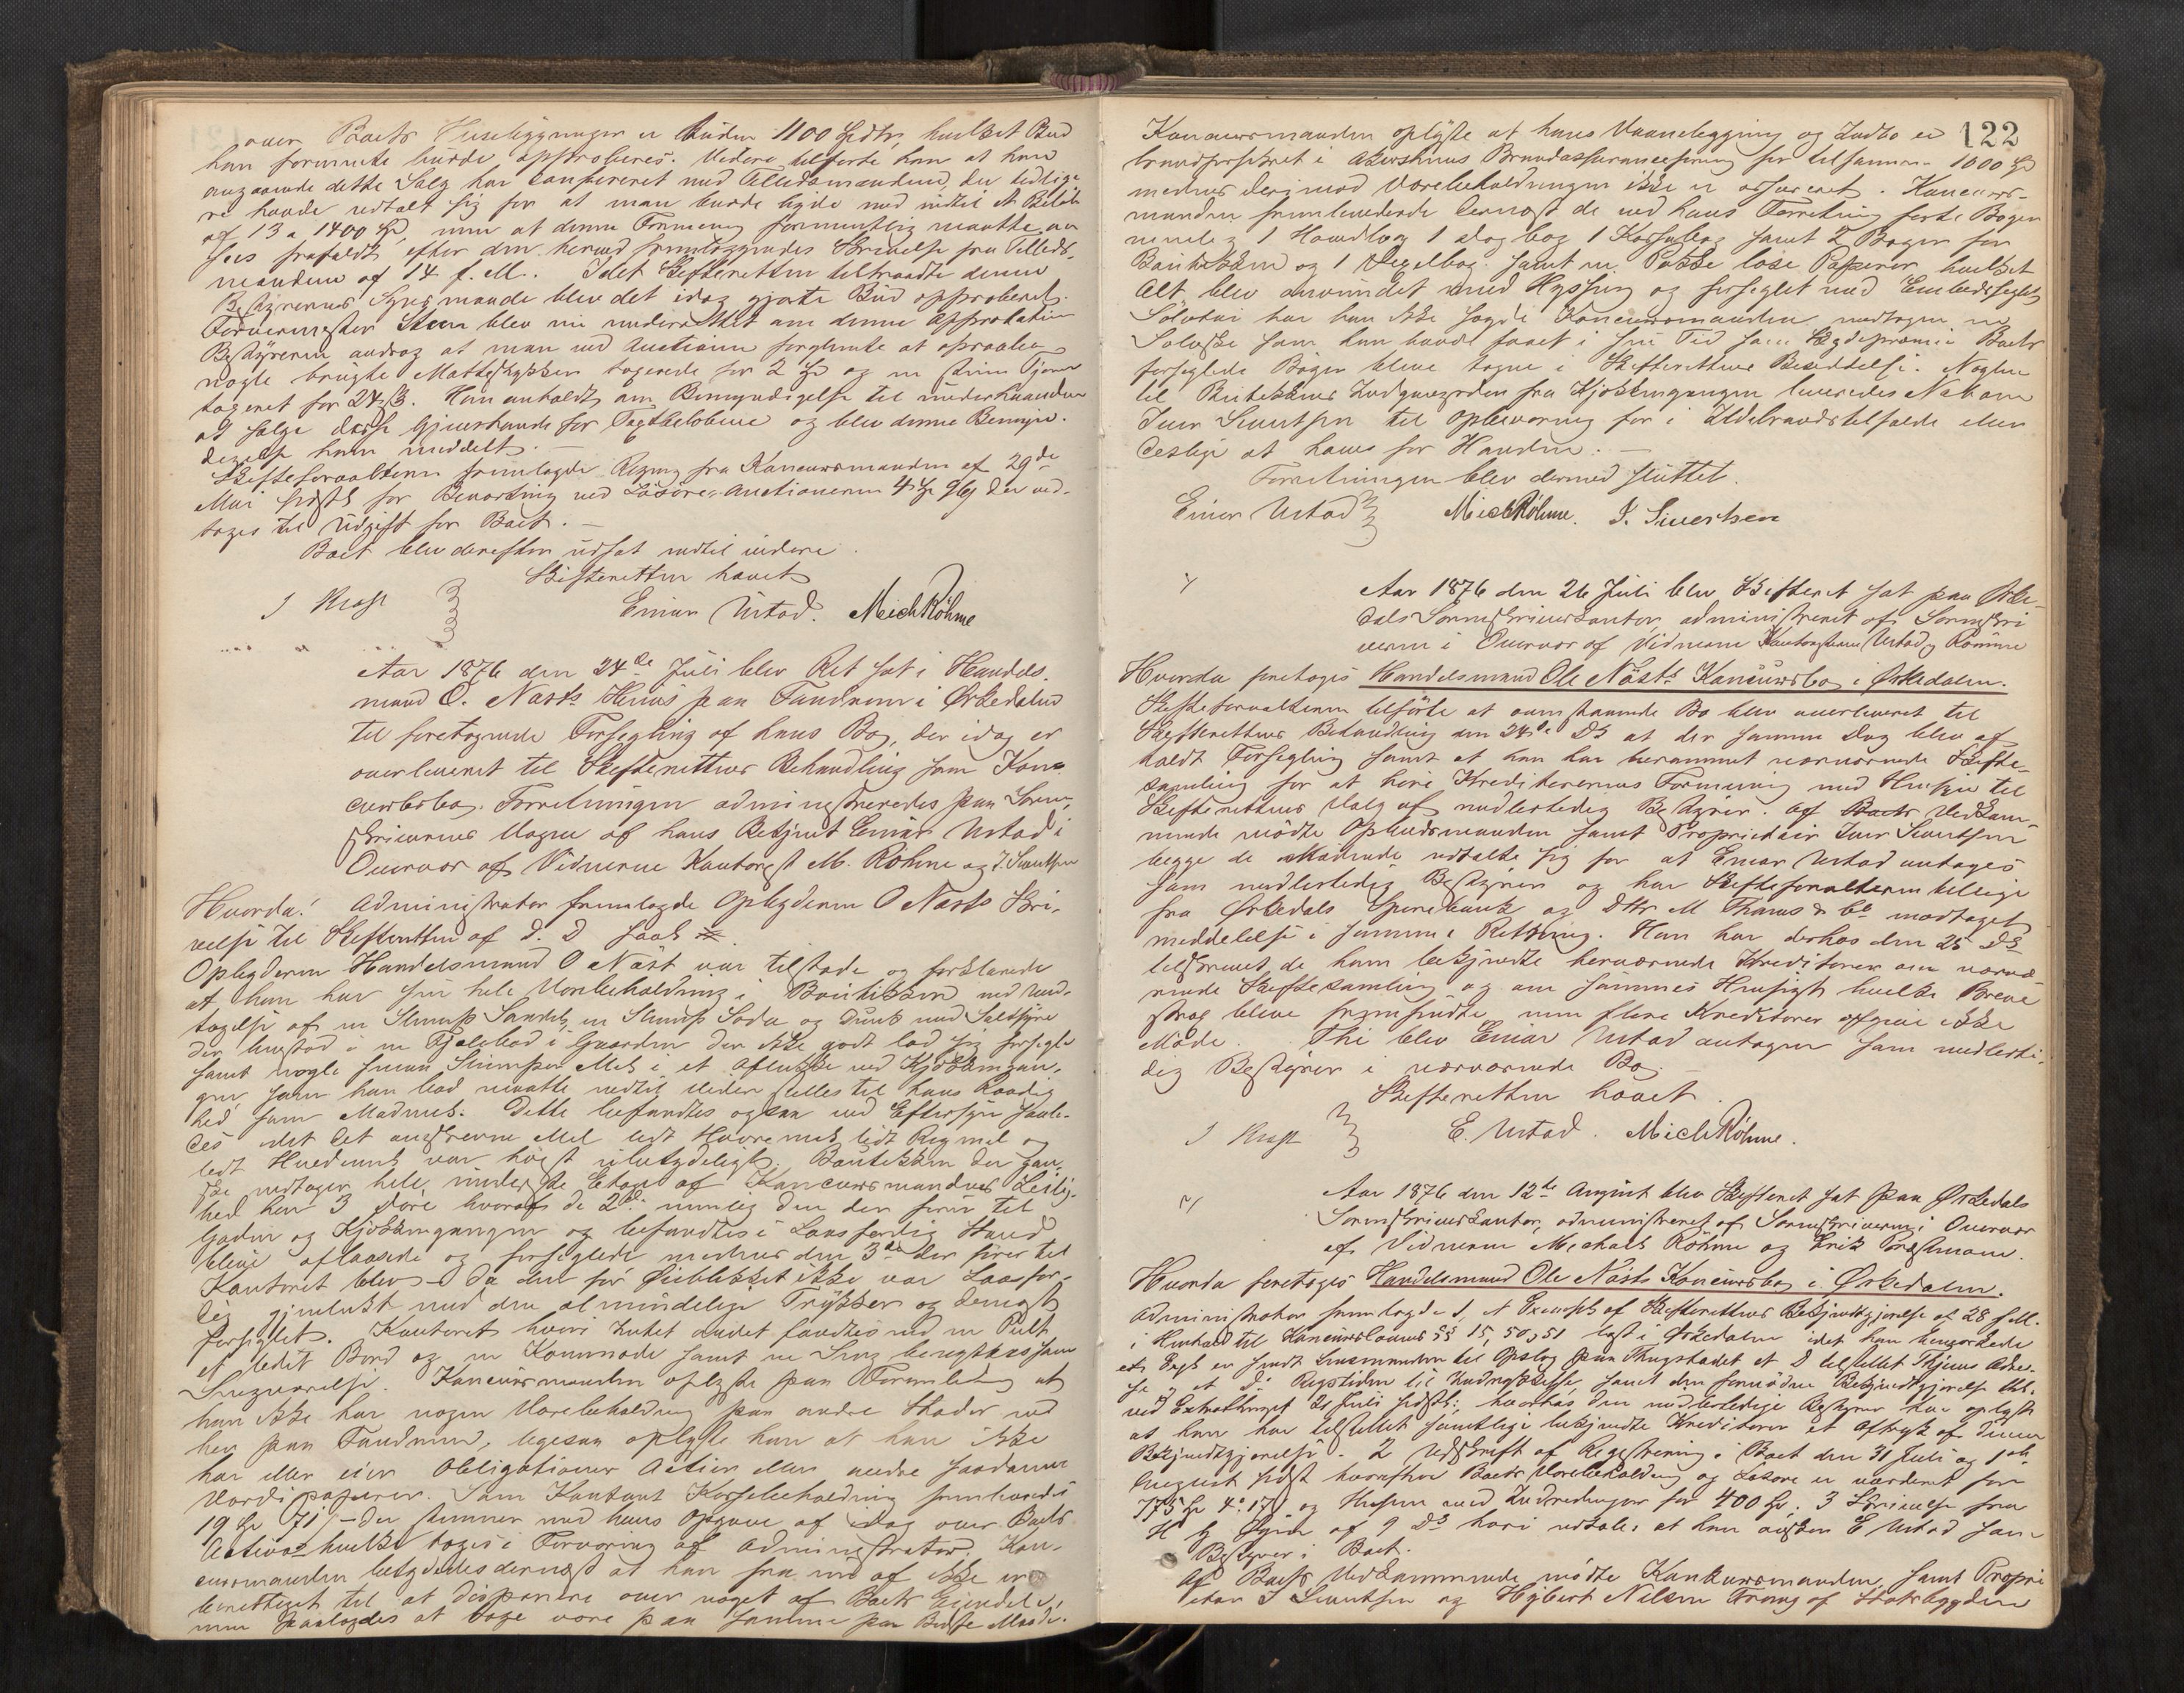 over Boets Huusbygninger er buden 1100 Spdlr, hvilket Bud
han formente burde approberes. Videre tilførte han at han
angaaende dette Salg har confereret med Tillidsmanden, der tidlige
re havde udtalt sig for at man burde byde med indtil et Beløb
af 13 a 1400 Spd, men at denne Formening formentlig maatte an
sees frafaldt efter den herved fremlæggendes Skrivelse fra Tillids-
manden af 14 f. M. Idet Skifteretten tiltraadte denne
Bestyrerens Synsmaade blev det idag gjorte Bud approberet.
Farvermester Steen blev nu underrettet om denne Approbation
Bestyreren androg at man ved Auctionen forglemte at opraabe
nogle brugte taxerede for 2 Spd og en Tjære
taxeret for 24 ß. Han anholdt om Bemyndigelse til underhaanden
at sælge disse Gjenstande for Taxtbeløbene og blev denne Bemyn-
digelse ham meddelt.
Skifteforvalteren fremlagde Regning fra Concursmanden af 29de
Mai sidstl. for Bevartning ved Løsøre-Auctionerne 4 Spd 96ß der ved-
toges til Udgift for Boet. –
Boet blev derefter udsat indtil videre.
Skifteretten hævet
I Kraft Einar Ustad. Mich Röhme
Aar 1876 den 24de Juli blev Ret sat i Handels-
mand O. Næsts Huus paa Fandrem i Ørkedalen
til foretagende Forsegling af hans Bo, der idag er
overleveret til Skifterettens Behandling som Kon-
cursbo. Forretningen administreredes paa Soren-
skriverens Vegne af hans Betjent Einar Ustad i
Overvær af Vidnerne Kontorist M. Röhme og I. Sivertsen
Hvorda! Administrator fremlagde Opbyderen O Næsts Skri-
velse til Skifteretten af d. D
Opbyderen Handelsmand O Næst var tilstede og forklarede
at han har sin hele Varebeholdning i Boutikken med Und-
tagelse af en Slump Sand, en Slump Soda og Dunk med
der henstod i en Sjølebod i Gaarden der ikke godt lod sig forsegle
samt nogle smaa Slumper Mel i et Aflukke ved Kjøkkengan-
gen, som han bad maatte indtil videre stilles til hans Raadig
hed som Madmel. Dette befandtes ogsaa ved Eftersyn saale-
des idet det anførne Mel lidt Havremel, lidt Rugmel og
lidt Hvedemel var høist ubetydeligt. Boutikken der gan-
ske indtager hele underste Etage af Koncursmandens Leilig-
hed har 3 Døre hvoraf de 2de nemlig den der fører til
Gaden og Kjøkkengangen og befandtes i Laasfærdig Stand
bleve aflaasede og forseglede medens den 3die der fører til
Kontoret blev – da den for Øieblikket ikke var Laasfær-
dig – gjenlukt med den almindelige Trykker og dernæst
forseglet. Kontoret hvori Intet andet fandtes end en Pult
et lidet Bord og en Kommode samt en Seng benyttes som
Sengværelse. Koncursmanden oplyste paa Foranledning at
han ikke har nogen Varebeholdning paa andre Steder end
her paa Fandrem, ligesaa oplyste han at han ikke
har eller eier Obligationer Actier eller andre saadanne
Værdipapirer. Som Kontant Kassebeholdning fremkomdes
19 Spd 71 ß – der stemmer med hans Opgave af idag over Boets
Activa – hvilke toges i Forvaring af Administrator. Kon-
cursmanden betydedes dernæst at han fra nu af ikke er
berettiget til at disponere over noget af Boets Eiendele,
men paalagdes at tage vare paa samme paa Bedste Maade.
122
Koncursmanden oplyste at hans Vaaningsbygning og Indbo er
brandforsikret i Akershuus Brandassuranceforening for tilsammen 1000 Spd
medens derimod Varebeholdningen ikke er assureret. Koncurs-
manden fremleverede dernæst de ved hans Forretning førte Bøger
nemlig 1 Hovedbog 1 Dagbog 1 Kassabog samt 2 Bøger for
Boutikken og 1 Vexelbog samt en Pakke løse Papirer, hvilket
Alt blev omvundet med Hyssing og forseglet med Embedsseglet
Sølvtøi har han ikke sagde Koncursmanden undtagen en
Sølvske som han havde faaet i sin Tid som Bygdepræmie Boets
forseglede Bøger bleve tagne i Skifterettens Besiddelse. Nøglen
til Butikkens Indgangsdør fra Kjøkkengangen leveredes Naboen
Iver Sivertsen til Opbevaring for i Ildebrandstilfælde eller
deslige at haves for Haanden. –
Forretningen blev dermed sluttet.
Einar Ustad Mich Röhme. I. Sivertsen
Aar 1876 den 26 Juli blev Skifteret sat paa Ørke-
dals Sorenskriverkontor, administreret af Sorenskri
veren i Overvær af Vidnerne Kontoristerne Ustad og Röhme
Hvorda foretoges Handelsmand Ole Næsts Koncursbo i Ørkedalen.
Skifteforvalteren tilførte at ovennævnte Bo blev overleveret til
Skifterettens Behandling den 24de Ds at der samme Dag blev af
holdt Forsegling samt at han har berammet nærværende Skifte-
samling for at høre Kreditorernes Formening med Hensyn til
Skifterettens Valg af midlertidig Bestyrer. Af Boets Vedkom-
mende mødte Opbudsmanden samt Proprietair Iver Sivertsen
begge de Mødende udtalte sig for at Einar Ustad antages
som midlertidig Bestyrer og har Skifteforvalteren tillige
fra Ørkedals Sparebank og DHr M Thams & Co modtaget
meddelelse i samme Retning. Han har derhos den 25 Ds
tilskrevet de ham bekjendte herværende Kreditorer om nærvæ-
rende Skiftesamling og om sammes Hensigt hvilke Breve
strax bleve fremsendte men flere Kreditorer afgive ikke
Møde. Thi blev Einar Ustad antagen som midlerti-
dig Bestyrer i nærværende Bo. –
Skifteretten hævet.
I Kraft E. Ustad. Mich Röhme.
Aar 1876 den 12te August blev Skifteret sat paa Ørkedals
Sorenskriverkontor, administreret af Sorenskriveren i Overvær
af Vidnerne Michael Röhme og Erik
Hvorda foretoges Handelsmand Ole Næsts Koncursbo i Ørkedalen.
Administrator fremlagde 1, et Exempl. af Skifterettens Bekjendtgjørelse af 28 f. M.
i Henhold til Koncurslovens §§ 15, 50, 51 læst i Ørkedalen idet han bemærkede
at Expl. er sendt Lensmanden til Opslag paa Thingstedet et D tilstillet Thjems Adres-
se og et D Rigstidende til Indrykkelse, samt den fornødne Bekjendtgjørelse
ved Extrathinget 31 Juli sidstl.; hvorhos den midlertidige Bestyrer har oplyst
at han har tilstillet samtlige bekjendte Kreditorer et Aftryk af denne
Bekjendtgjørelse. 2 Udskrift af Registrering i Boet den 31 Juli og 1ste
August sidst hvorefter Boets Varebeholdning og Løsøre er vurderet for
775 Spd 4. 17ß og Husene med Indredninger for 400 Spd. 3 Skrivelse fra
H G af 9 Ds hvori udtales at han ønsker E Ustad som
Bestyrer i Boet.
Af Boets Vedkommende mødte Konkursmanden, samt Propri
etær I Sivertsen og Nilsen af